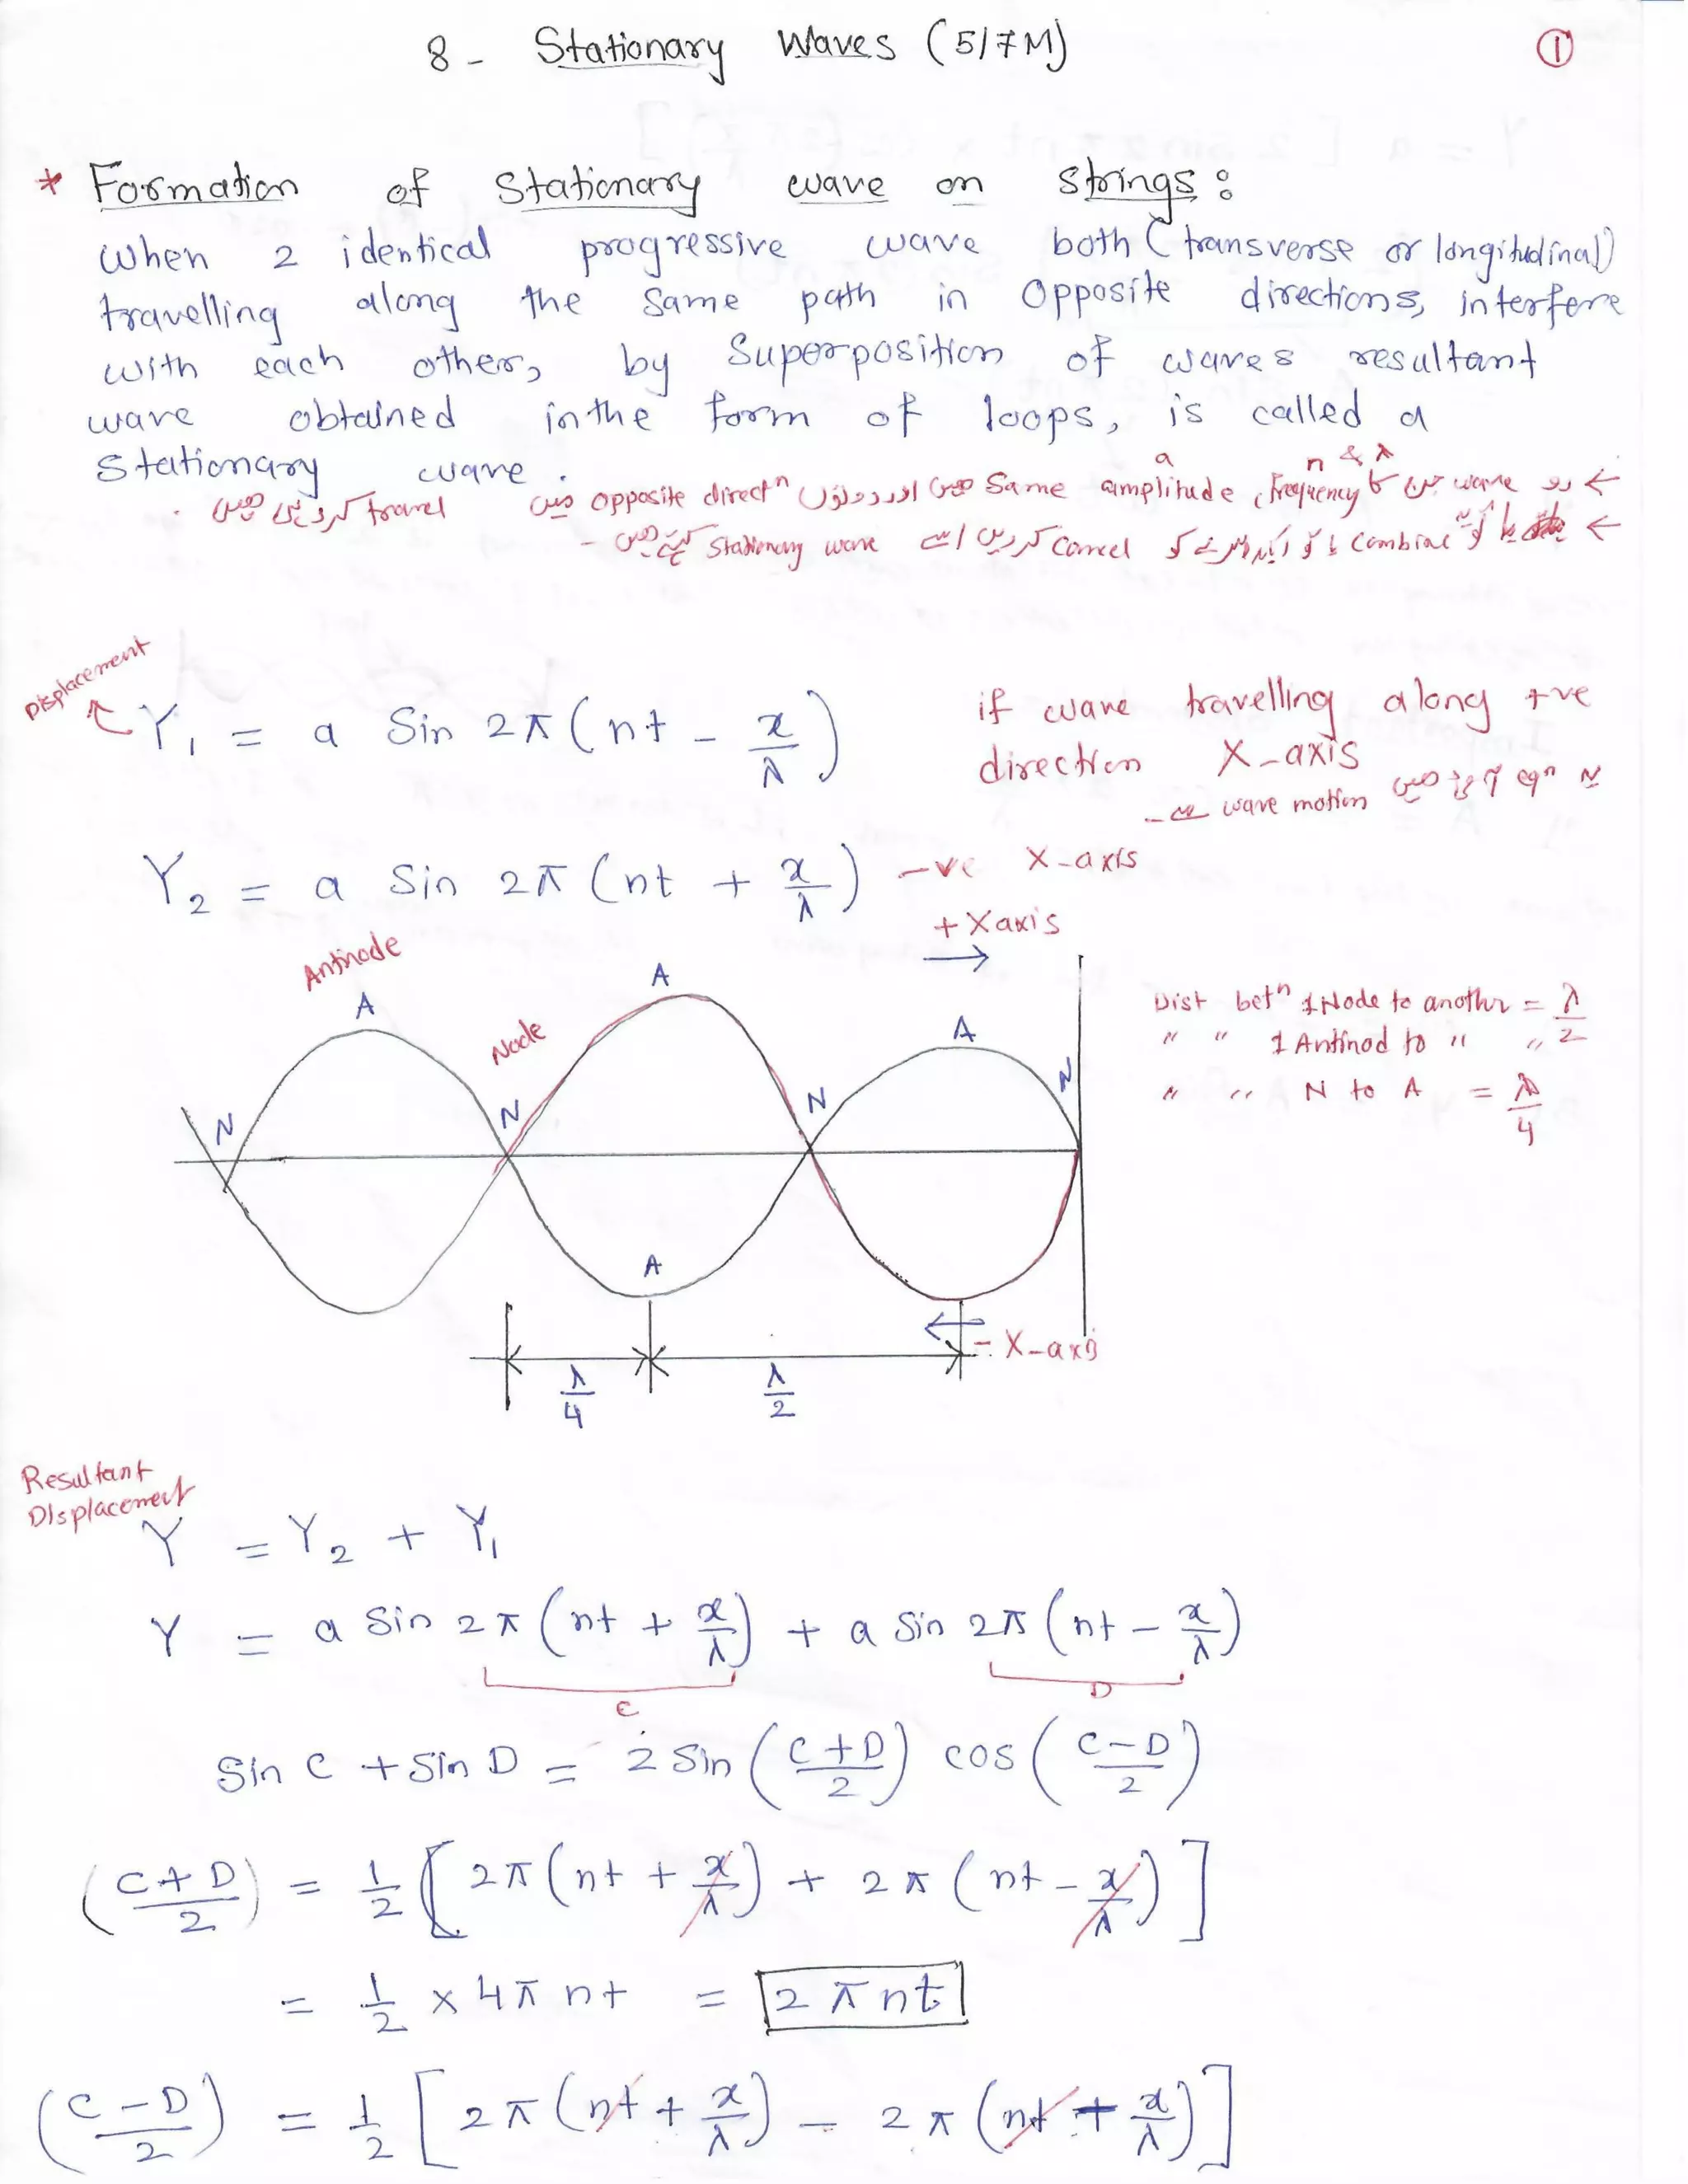 8 - Stationary Waves (5/7M)
1
* Formation of Stationary wave on strings :
When 2 identical progressive wave both (transverse or longitudinal)
travelling along the same path in opposite directions, interfere
with each others, by Superposition of waves resultant
wave obtained in the form of loops, is called a
Stationary wave .
a n & λ
← دو wave جن کا Frequency, amplitude Same ہیں اور دونوں opposite directn میں
travel کر رہی ہیں .
← combine یا تو ایک دوسرے کو cancel کردیں اسے Stationary wave کہتے ہیں -
Displacement
Y1 = a Sin 2π (nt - x/λ)
if wave travelling along +ve
direction X-axis
eqn میں wave motion
Y2 = a Sin 2π (nt + x/λ) -ve X-axis
+ X axis
Antinode
A
A
A
Node
N
N
N
N
A
Dist betn 1 Node to another = λ/2
" " 1 Antinod to " "
" " N to A = λ/4
- X-axis
λ/4
λ/2
Resultant
Displacement
Y = Y2 + Y1
Y = a Sin 2π (nt + x/λ) + a Sin 2π (nt - x/λ)
C D
Sin C + Sin D = 2 Sin (C+D/2) cos (C-D/2)
(C+D/2) = 1/2 [2π (nt + x/λ) + 2π (nt - x/λ)]
= 1/2 x 4π nt = 2π nt
(C-D/2) = 1/2 [2π (nt + x/λ) - 2π (nt + x/λ)]